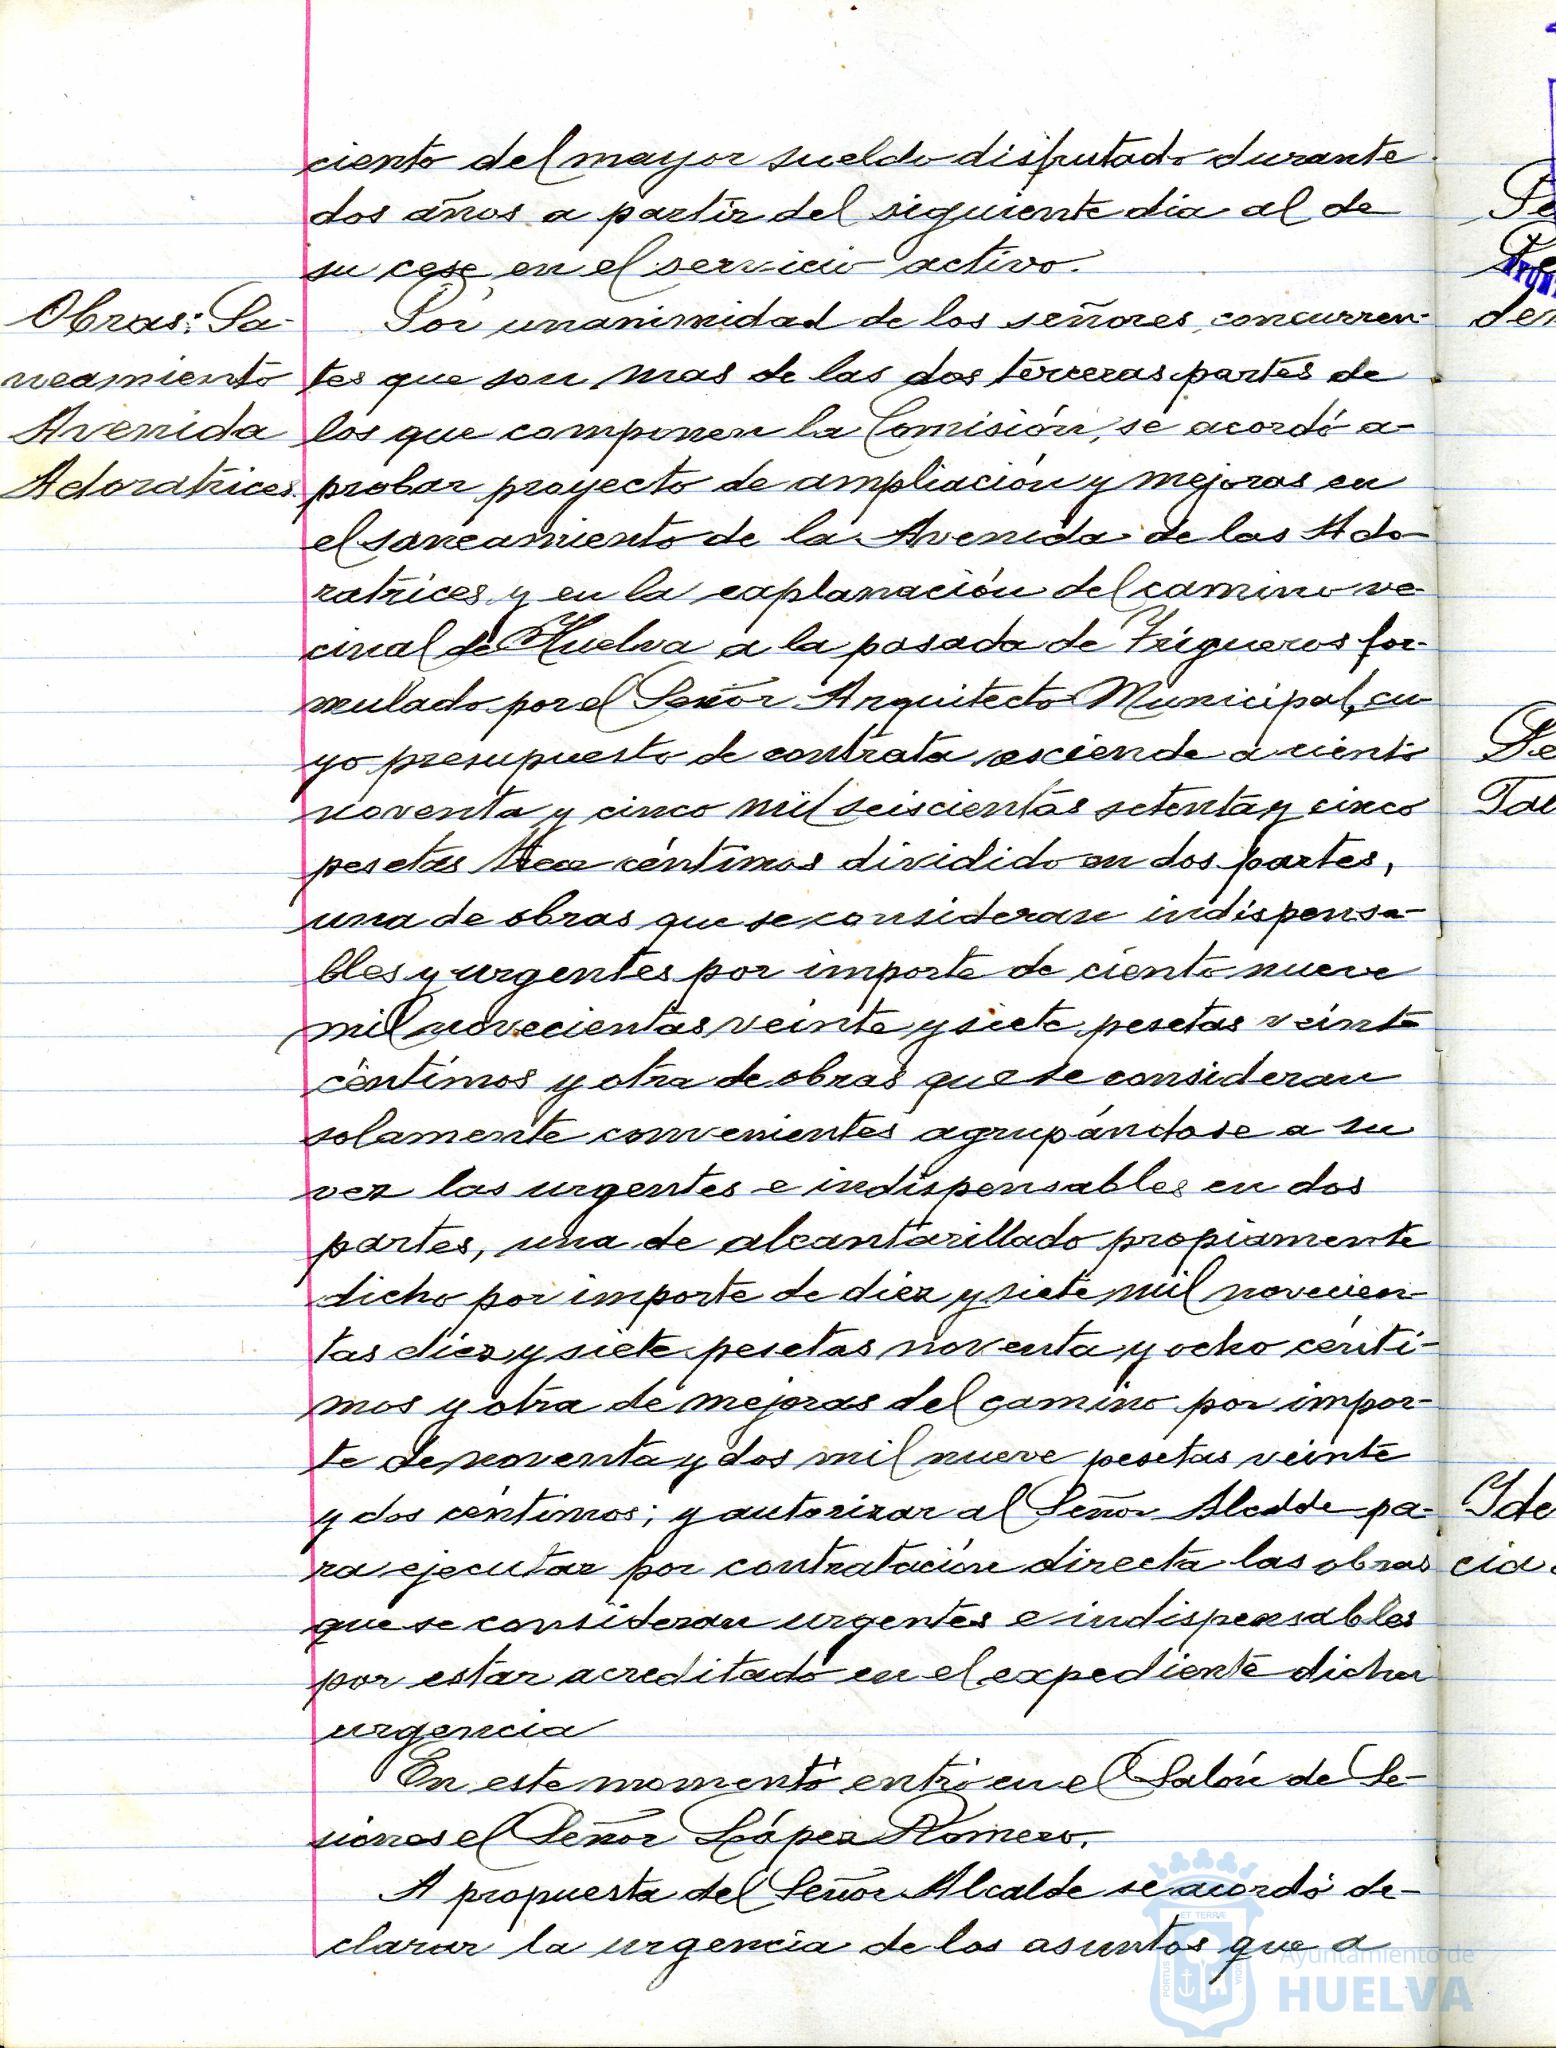 ciento del mayor sueldo disfrutado durante
dos años a partir del siguiente dia al de
su cese en el servicio activo.
Obras: Sa-
neamiento
Avenida
Adoratrices.
Por unanimidad de los señores concurren-
tes que son mas de las dos terceras partes de
los que componen la Comisión, se acordó a-
probar proyecto de ampliación y mejoras en
el saneamiento de la Avenida de las Ado-
ratrices y en la explanación del camino ve-
cinal de Huelva a la pasada de Trigueros for-
mulado por el Señor Arquitecto Municipal, cu-
yo presupuesto de contrata asciende a ciento
noventa y cinco mil seiscientas setenta y cinco
pesetas tres céntimos dividido en dos partes,
una de obras que se consideran indispensa-
bles y urgentes por importe de ciento nueve
mil novecientas veinte y siete pesetas veinte
céntimos y otra de obras que se consideran
solamente convenientes agrupándose a su
vez las urgentes e indispensables en dos
partes, una de alcantarillado propiamente
dicho por importe de diez y siete mil novecien-
tas diez y siete pesetas noventa y ocho cénti-
mos y otra de mejoras del camino por impor-
te de noventa y dos mil nueve pesetas veinte
y dos céntimos; y autorizar al Señor Alcalde pa-
ra ejecutar por contratación directa las obras
que se consideran urgentes e indispensables
por estar acreditado en el expediente dicha
urgencia
En este momento entró en el Salón de Se-
siones el Señor López Romero.
A propuesta del Señor Alcalde se acordó de-
clarar la urgencia de los asuntos que a
Ayuntamiento de
HUELVA